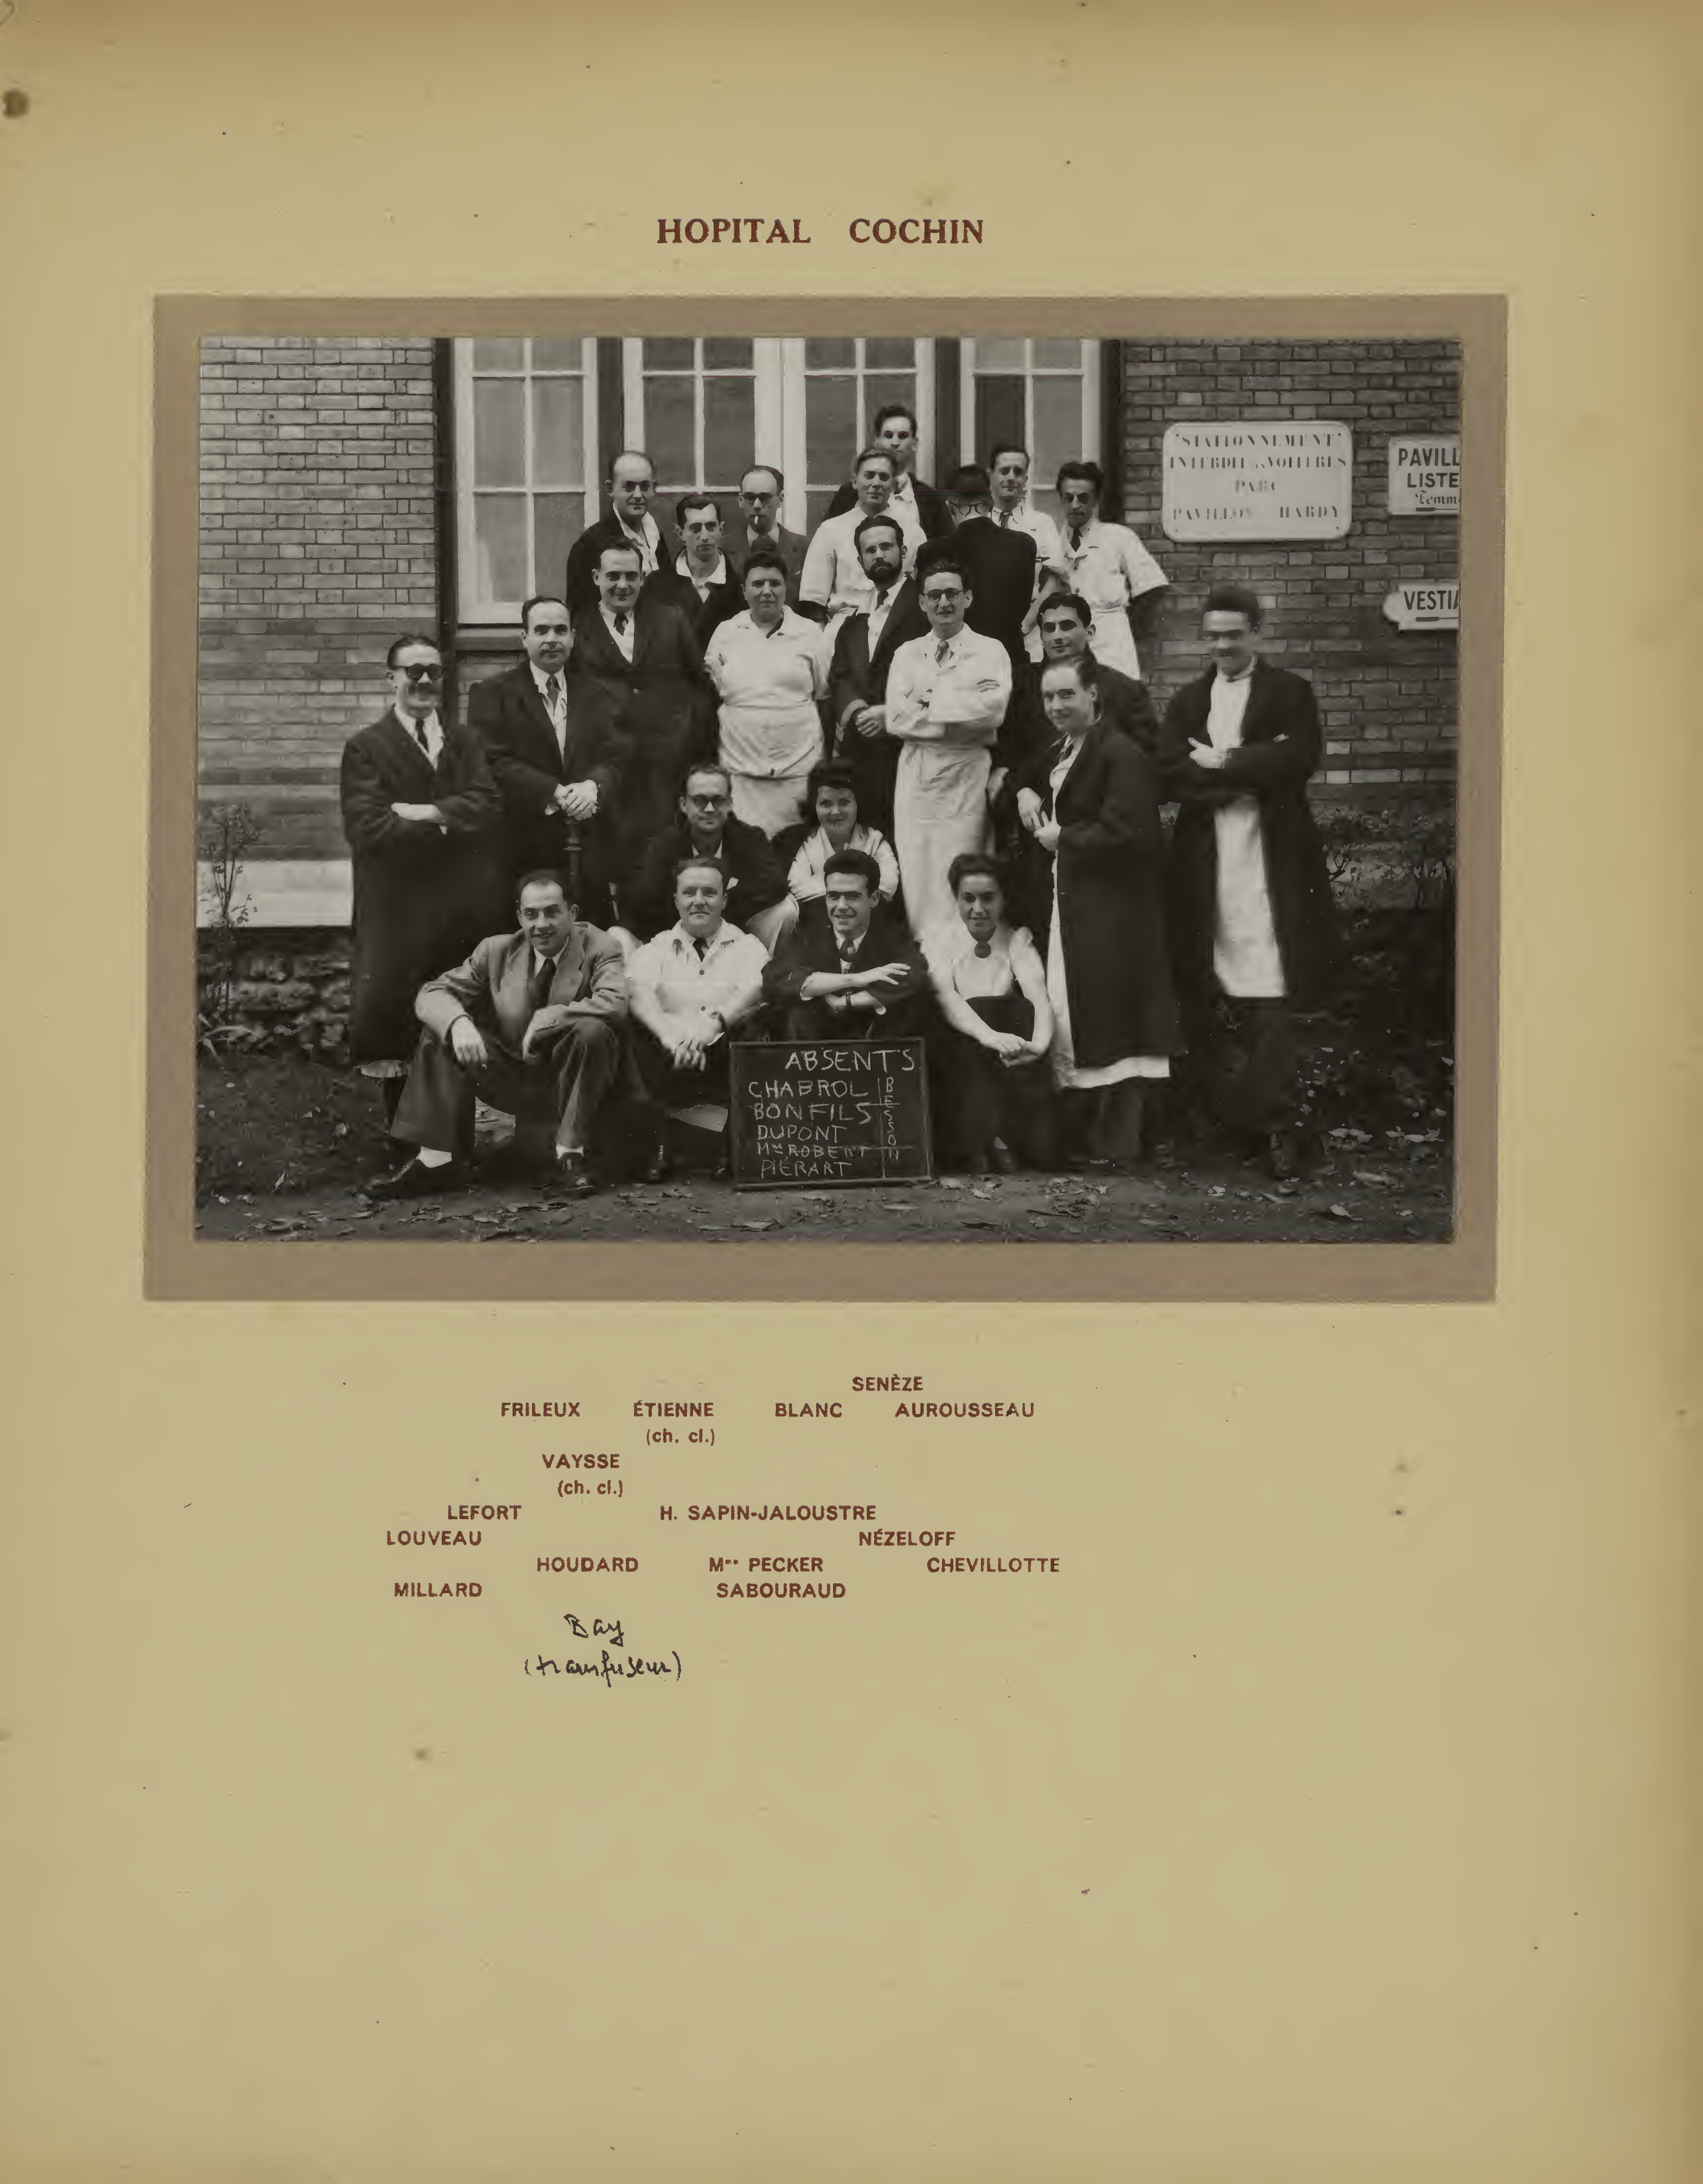 HOPITAL COCHIN
"STATIONNEMENT"
INTERDIT aux VOITURES
PARC
PAVILLON HARDY
PAVILL
LISTE
Femm
VESTIA
ABSENTS
CHABROL
BONFILS
DUPONT
Mme ROBERT
PIÉRART
BESSON
SENÈZE
FRILEUX ÉTIENNE BLANC AUROUSSEAU
(ch. cl.)
VAYSSE
(ch. cl.)
LEFORT H. SAPIN-JALOUSTRE
LOUVEAU NÉZELOFF
HOUDARD Mme PECKER CHEVILLOTTE
MILLARD SABOURAUD
Bay
(transfuseur)